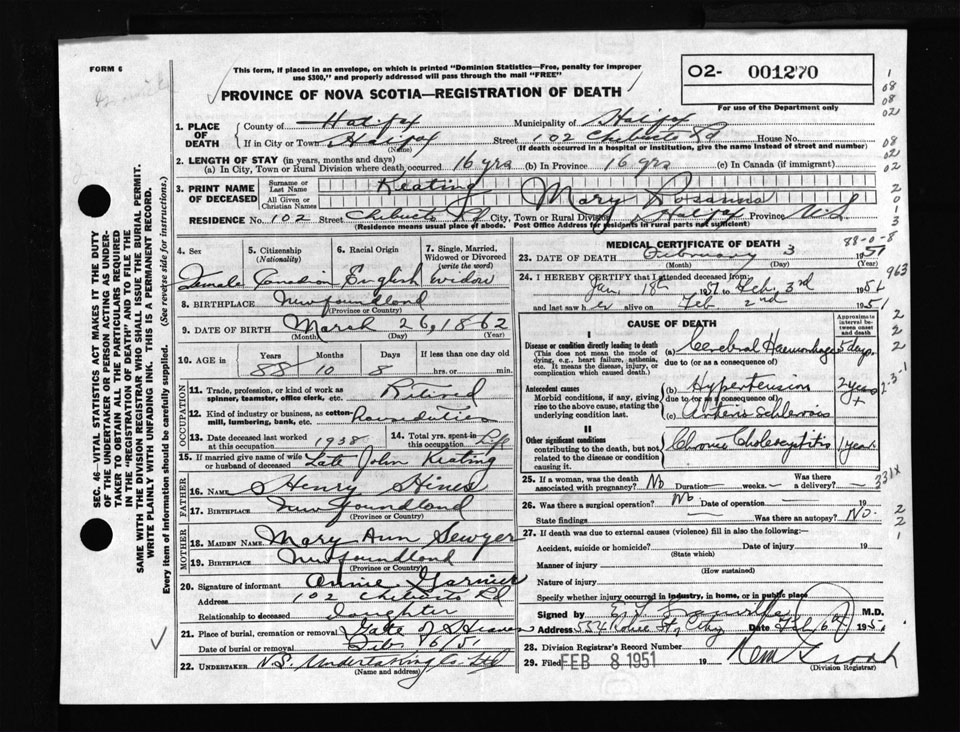 FORM 6
This form, if placed in an envelope, on which is printed "Dominion Statistics—Free, penalty for improper
use $300," and properly addressed will pass through the mail "FREE"
PROVINCE OF NOVA SCOTIA—REGISTRATION OF DEATH
02- 001270
For use of the Department only
1. PLACE OF DEATH
County of Halifax Municipality of Halifax
If in City or Town Halifax Street 102 Chebucto Rd House No.
(Name) (If death occurred in a hospital or institution, give the name instead of street and number)
2. LENGTH OF STAY (in years, months and days)
(a) In City, Town or Rural Division where death occurred 16 yrs (b) In Province 16 yrs (c) In Canada (if immigrant)
3. PRINT NAME OF DECEASED
Surname or Last Name Keating
All Given or Christian Names Mary Rosanna
RESIDENCE No. 102 Street Chebucto Rd City, Town or Rural Division Halifax Province N.S.
(Residence means usual place of abode. Post Office Address for residents in rural parts not sufficient)
4. Sex
Female
5. Citizenship (Nationality)
Canadian
6. Racial Origin
English
7. Single, Married, Widowed or Divorced (write the word)
Widow
8. BIRTHPLACE Newfoundland
(Province or Country)
9. DATE OF BIRTH March 26, 1862
(Month) (Day) (Year)
10. AGE in Years Months Days If less than one day old
88 10 8 hrs. or min.
OCCUPATION
11. Trade, profession, or kind of work as spinner, teamster, office clerk, etc. Retired
12. Kind of industry or business, as cotton-mill, lumbering, bank, etc. Own duties
13. Date deceased last worked at this occupation 1938
14. Total yrs. spent in this occupation Life
15. If married give name of wife or husband of deceased Late John Keating
FATHER
16. Name Henry Hines
17. Birthplace Newfoundland
(Province or Country)
MOTHER
18. MAIDEN NAME Mary Ann Sewyer
19. BIRTHPLACE Newfoundland
(Province or Country)
20. Signature of informant Annie Garnier
Address 102 Chebucto Rd
Relationship to deceased Daughter
21. Place of burial, cremation or removal Gate of Heaven
Date of burial or removal Feb. 6/51
22. UNDERTAKER N.S. Undertaking Co. Ltd
(Name and address)
MEDICAL CERTIFICATE OF DEATH
88-0-8
23. DATE OF DEATH February 3 1951
(Month) (Day) (Year)
24. I HEREBY CERTIFY that I attended deceased from:
Jan. 18th 1951 to Feb. 3rd 1951
and last saw her alive on Feb 2nd 1951
CAUSE OF DEATH
Approximate interval between onset and death
I
Disease or condition directly leading to death
(This does not mean the mode of dying, e.g., heart failure, asthenia, etc. It means the disease, injury, or complication which caused death.)
(a) Cerebral Haemorrhage 5 days
due to (or as a consequence of)
Antecedent causes
Morbid conditions, if any, giving rise to the above cause, stating the underlying condition last.
(b) Hypertension 2 years +
due to (or as a consequence of)
(c) Arterio Schlerosis
II
Other significant conditions
contributing to the death, but not related to the disease or condition causing it.
Chronic Cholecystitis 1 year
25. If a woman, was the death associated with pregnancy? No Duration — weeks — Was there a delivery? —
26. Was there a surgical operation? No Date of operation 19
State findings Was there an autopsy? No.
27. If death was due to external causes (violence) fill in also the following:—
Accident, suicide or homicide? Date of injury 19
(State which)
Manner of injury
(How sustained)
Nature of injury
Specify whether injury occurred in industry, in home, or in public place
Signed by M.D.
Address City Date Feb 6th 1951
28. Division Registrar's Record Number
29. Filed FEB 8 1951 19
(Division Registrar)
SEC. 46—VITAL STATISTICS ACT MAKES IT THE DUTY
OF THE UNDERTAKER OR PERSON ACTING AS UNDER-
TAKER TO OBTAIN ALL THE PARTICULARS REQUIRED
IN THE "REGISTRATION OF DEATH" AND TO FILE THE
SAME WITH THE DIVISION REGISTRAR WHO SHALL ISSUE THE BURIAL PERMIT.
WRITE PLAINLY WITH UNFADING INK. THIS IS A PERMANENT RECORD.
Every item of Information should be carefully supplied. (See over for instructions.)
1
08
08
02
08
02
02
2
0
1
3
963
2
2
2
2-3-1
331X
2
2
1